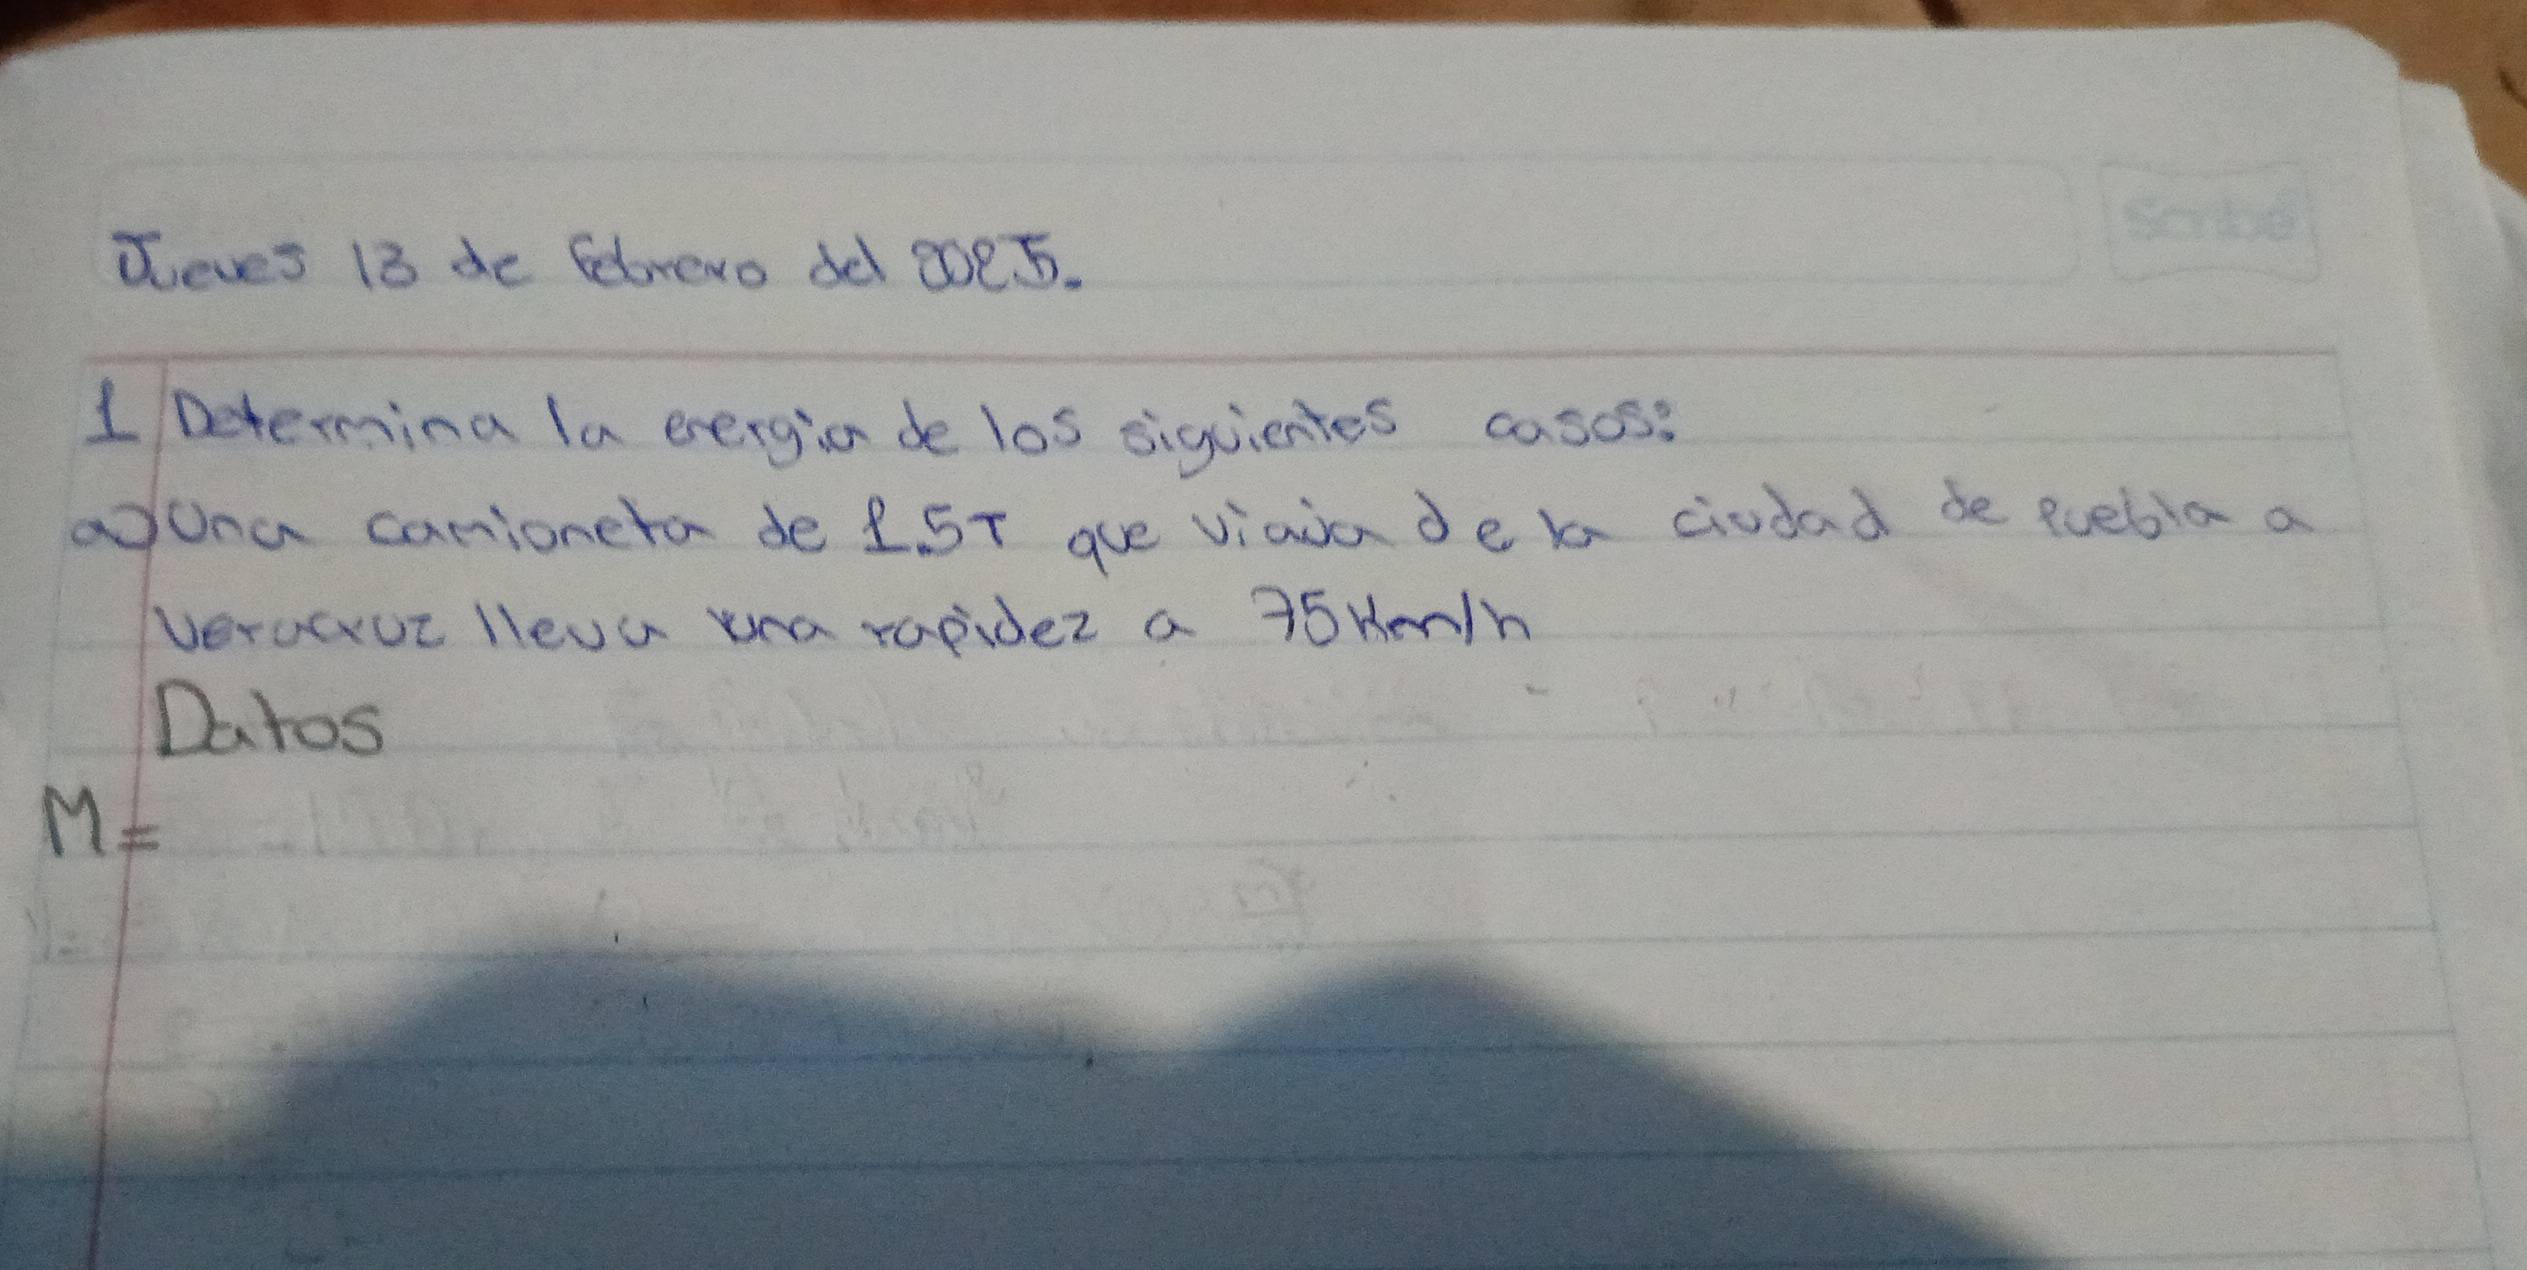 Scribe
Jueves 13 de febrero del 2025.
1 Determina la energia de los siguientes casos:
a) Una camioneta de 1.5T que viaja de la ciudad de puebla a
veracruz lleva una rapidez a 75Km/h
Datos
M=